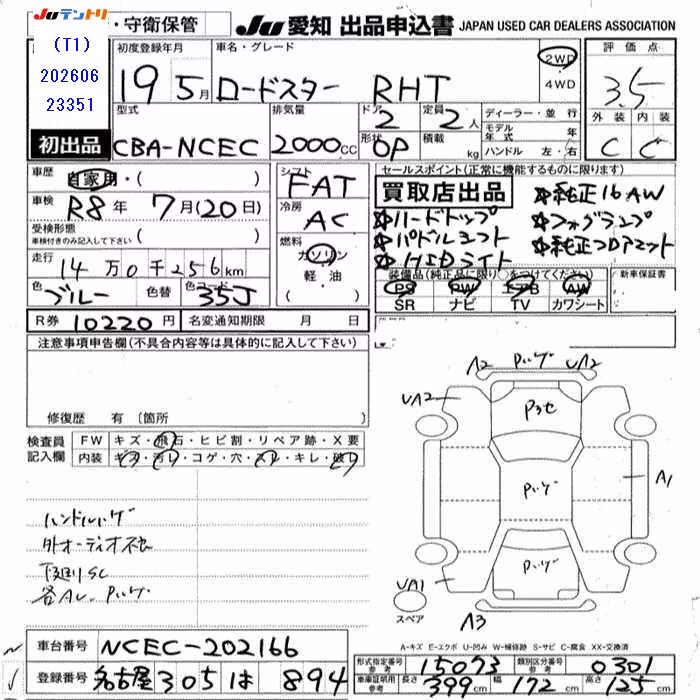 Juテントリ
・守衛保管
Ju 愛知 出品申込書 JAPAN USED CAR DEALERS ASSOCIATION
(T1)
202606
23351
初出品
初度登録年月
19 5月
車名・グレード
ロードスター RHT
2WD
・
4WD
評価点
3.5
外装 内装
C C
型式
CBA-NCEC
排気量
2000cc
ドア
2
定員
2人
形状
OP
積載
kg
ディーラー・並行
モデル年式 年
ハンドル 左・右
車歴 自家用・( )
車検 R8年 7月(20日)
受検形態
車検付きのみ記入して下さい ( )
走行
14万0千256km
色
ブルー
色替
色コード
35J
シフト
FAT
冷房
AC
燃料
ガソリン
軽・油
R券 10220円 名変通知期限 月 日
セールスポイント(正常に機能するものに限ります)
買取店出品
☆ハードトップ
☆パドルシフト
☆HIDライト
☆純正16AW
☆フォグランプ
☆純正フロアマット
装備品(純正品に限り○をつけてください)
PS PW エアB AW
SR ナビ TV カワシート
新車保証書
注意事項申告欄(不具合内容等は具体的に記入して下さい)
修復歴 有 〔箇所
検査員
記入欄
FW キズ・飛石・ヒビ割・リペア跡・X要
内装 キズ・汚レ・コゲ・穴・スレ・キレ・破レ
ハンドルハゲ
下廻りSC
A2 Pハゲ UA2
UA2
Pハゲ
A1
Pハゲ
UA1
A3
スペア
A-キズ E-エクボ U-凹み W-補修跡 S-サビ C-腐食 XX-交換済
車台番号 NCEC-202166
登録番号 名古屋 305 は 894
形式指定番号
参考
15073
類別区分番号
参考
0301
車庫証明用
参考
長さ 399cm 幅 172cm 高さ 125cm